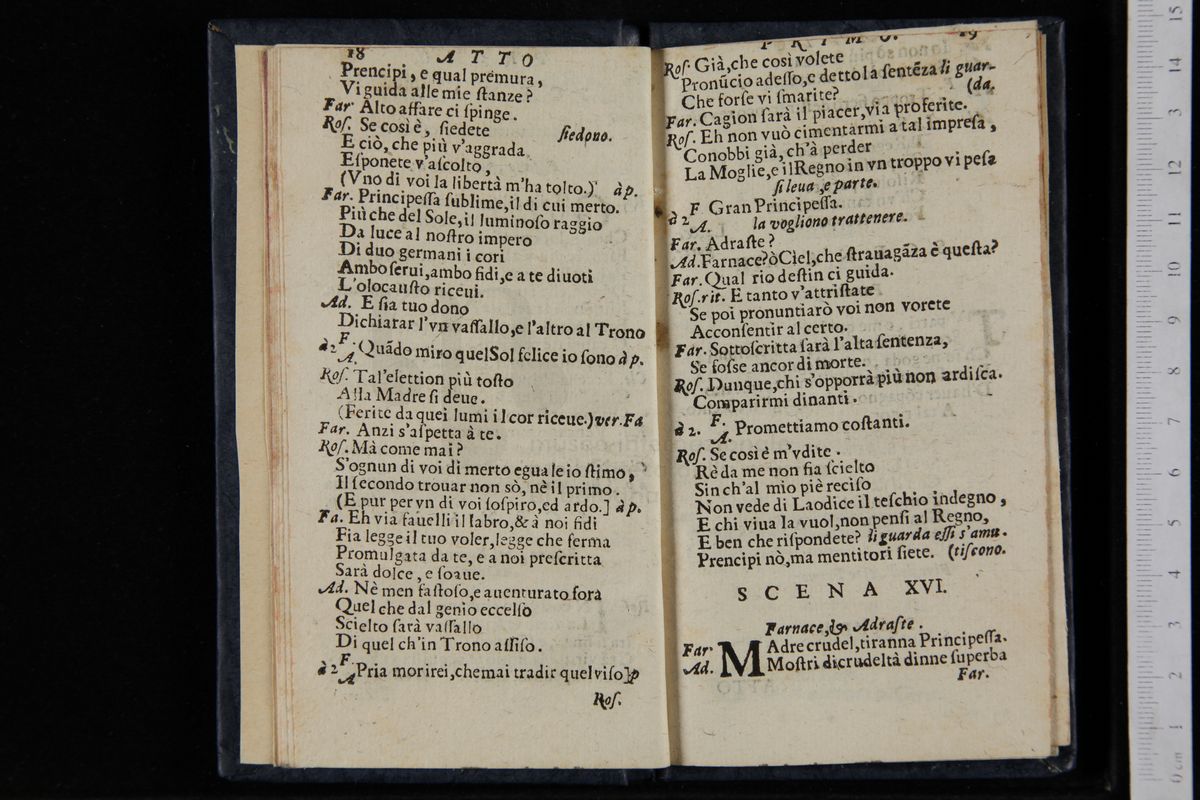 18 ATTO
Prencipi, e qual premura,
Vi guida alle mie ſtanze?
Far Alto affare ci ſpinge.
Roſ. Se così è, ſiedete ſiedono.
E ciò, che più v'aggrada
Eſponete v'aſcolto,
(Vno di voi la libertà m'ha tolto.) à p.
Far. Principeſſa ſublime, il di cui merto.
Più che del Sole, il luminoſo raggio
Da luce al noſtro impero
Di duo germani i cori
Ambo ſerui, ambo fidi, e a te diuoti
L'olocauſto riceui.
Ad. E ſia tuo dono
Dichiarar l'vn vaſſallo, e l'altro al Trono
à 2 F. A. Quãdo miro quel Sol felice io ſono à p.
Roſ. Tal'elettion più toſto
Alla Madre ſi deue.
(Ferite da quei lumi il cor riceue.) ver. Fa
Far. Anzi s'aſpetta à te.
Roſ. Mà come mai?
S'ognun di voi di merto eguale io ſtimo,
Il ſecondo trouar non sò, nè il primo.
(E pur per vn di voi ſoſpiro, ed ardo.] à p.
Fa. Eh via fauelli il labro, & à noi fidi
Fia legge il tuo voler, legge che ferma
Promulgata da te, e a noi preſcritta
Sarà dolce, e ſoaue.
Ad. Nè men faſtoſo, e auenturato fora
Quel che dal genio eccelſo
Scielto ſarà vaſſallo
Di quel ch'in Trono aſſiſo.
à 2 F. A Pria morirei, che mai tradir quel viſo] p
Roſ.
PRIMO. 19
Roſ. Già, che così volete
Pronũcio adeſſo, e detto la ſentẽza li guar-
Che forſe vi ſmarite? (da.
Far. Cagion ſarà il piacer, via proferite.
Roſ. Eh non vuò cimentarmi a tal impreſa,
Conobbi già, ch'à perder
La Moglie, e il Regno in vn troppo vi peſa
ſi leua, e parte.
à 2 F A. Gran Principeſſa.
la vogliono trattenere.
Far. Adraſte?
Ad. Farnace? ò Ciel, che ſtrauagãza è queſta?
Far. Qual rio deſtin ci guida.
Roſ. rit. E tanto v'attriſtate
Se poi pronuntiarò voi non vorete
Acconſentir al certo.
Far. Sottoſcritta ſarà l'alta ſentenza,
Se foſſe ancor di morte.
Roſ. Dunque, chi s'opporrà più non ardiſca.
Comparirmi dinanti.
à 2. F. A. Promettiamo coſtanti.
Roſ. Se così è m'vdite.
Rè da me non fia ſcielto
Sin ch'al mio piè reciſo
Non vede di Laodice il teſchio indegno,
E chi viua la vuol, non penſi al Regno,
E ben che riſpondete? li guarda eſſi s'amu.
Prencipi nò, ma mentitori ſiete. (tiſcono.
SCENA XVI.
Farnace, & Adraſte.
Far. MAdre crudel, tiranna Principeſſa.
Ad. Moſtri di crudeltà dinne ſuperba
Far.
15
14
13
12
11
10
9
8
7
6
5
4
3
2
1
0 cm